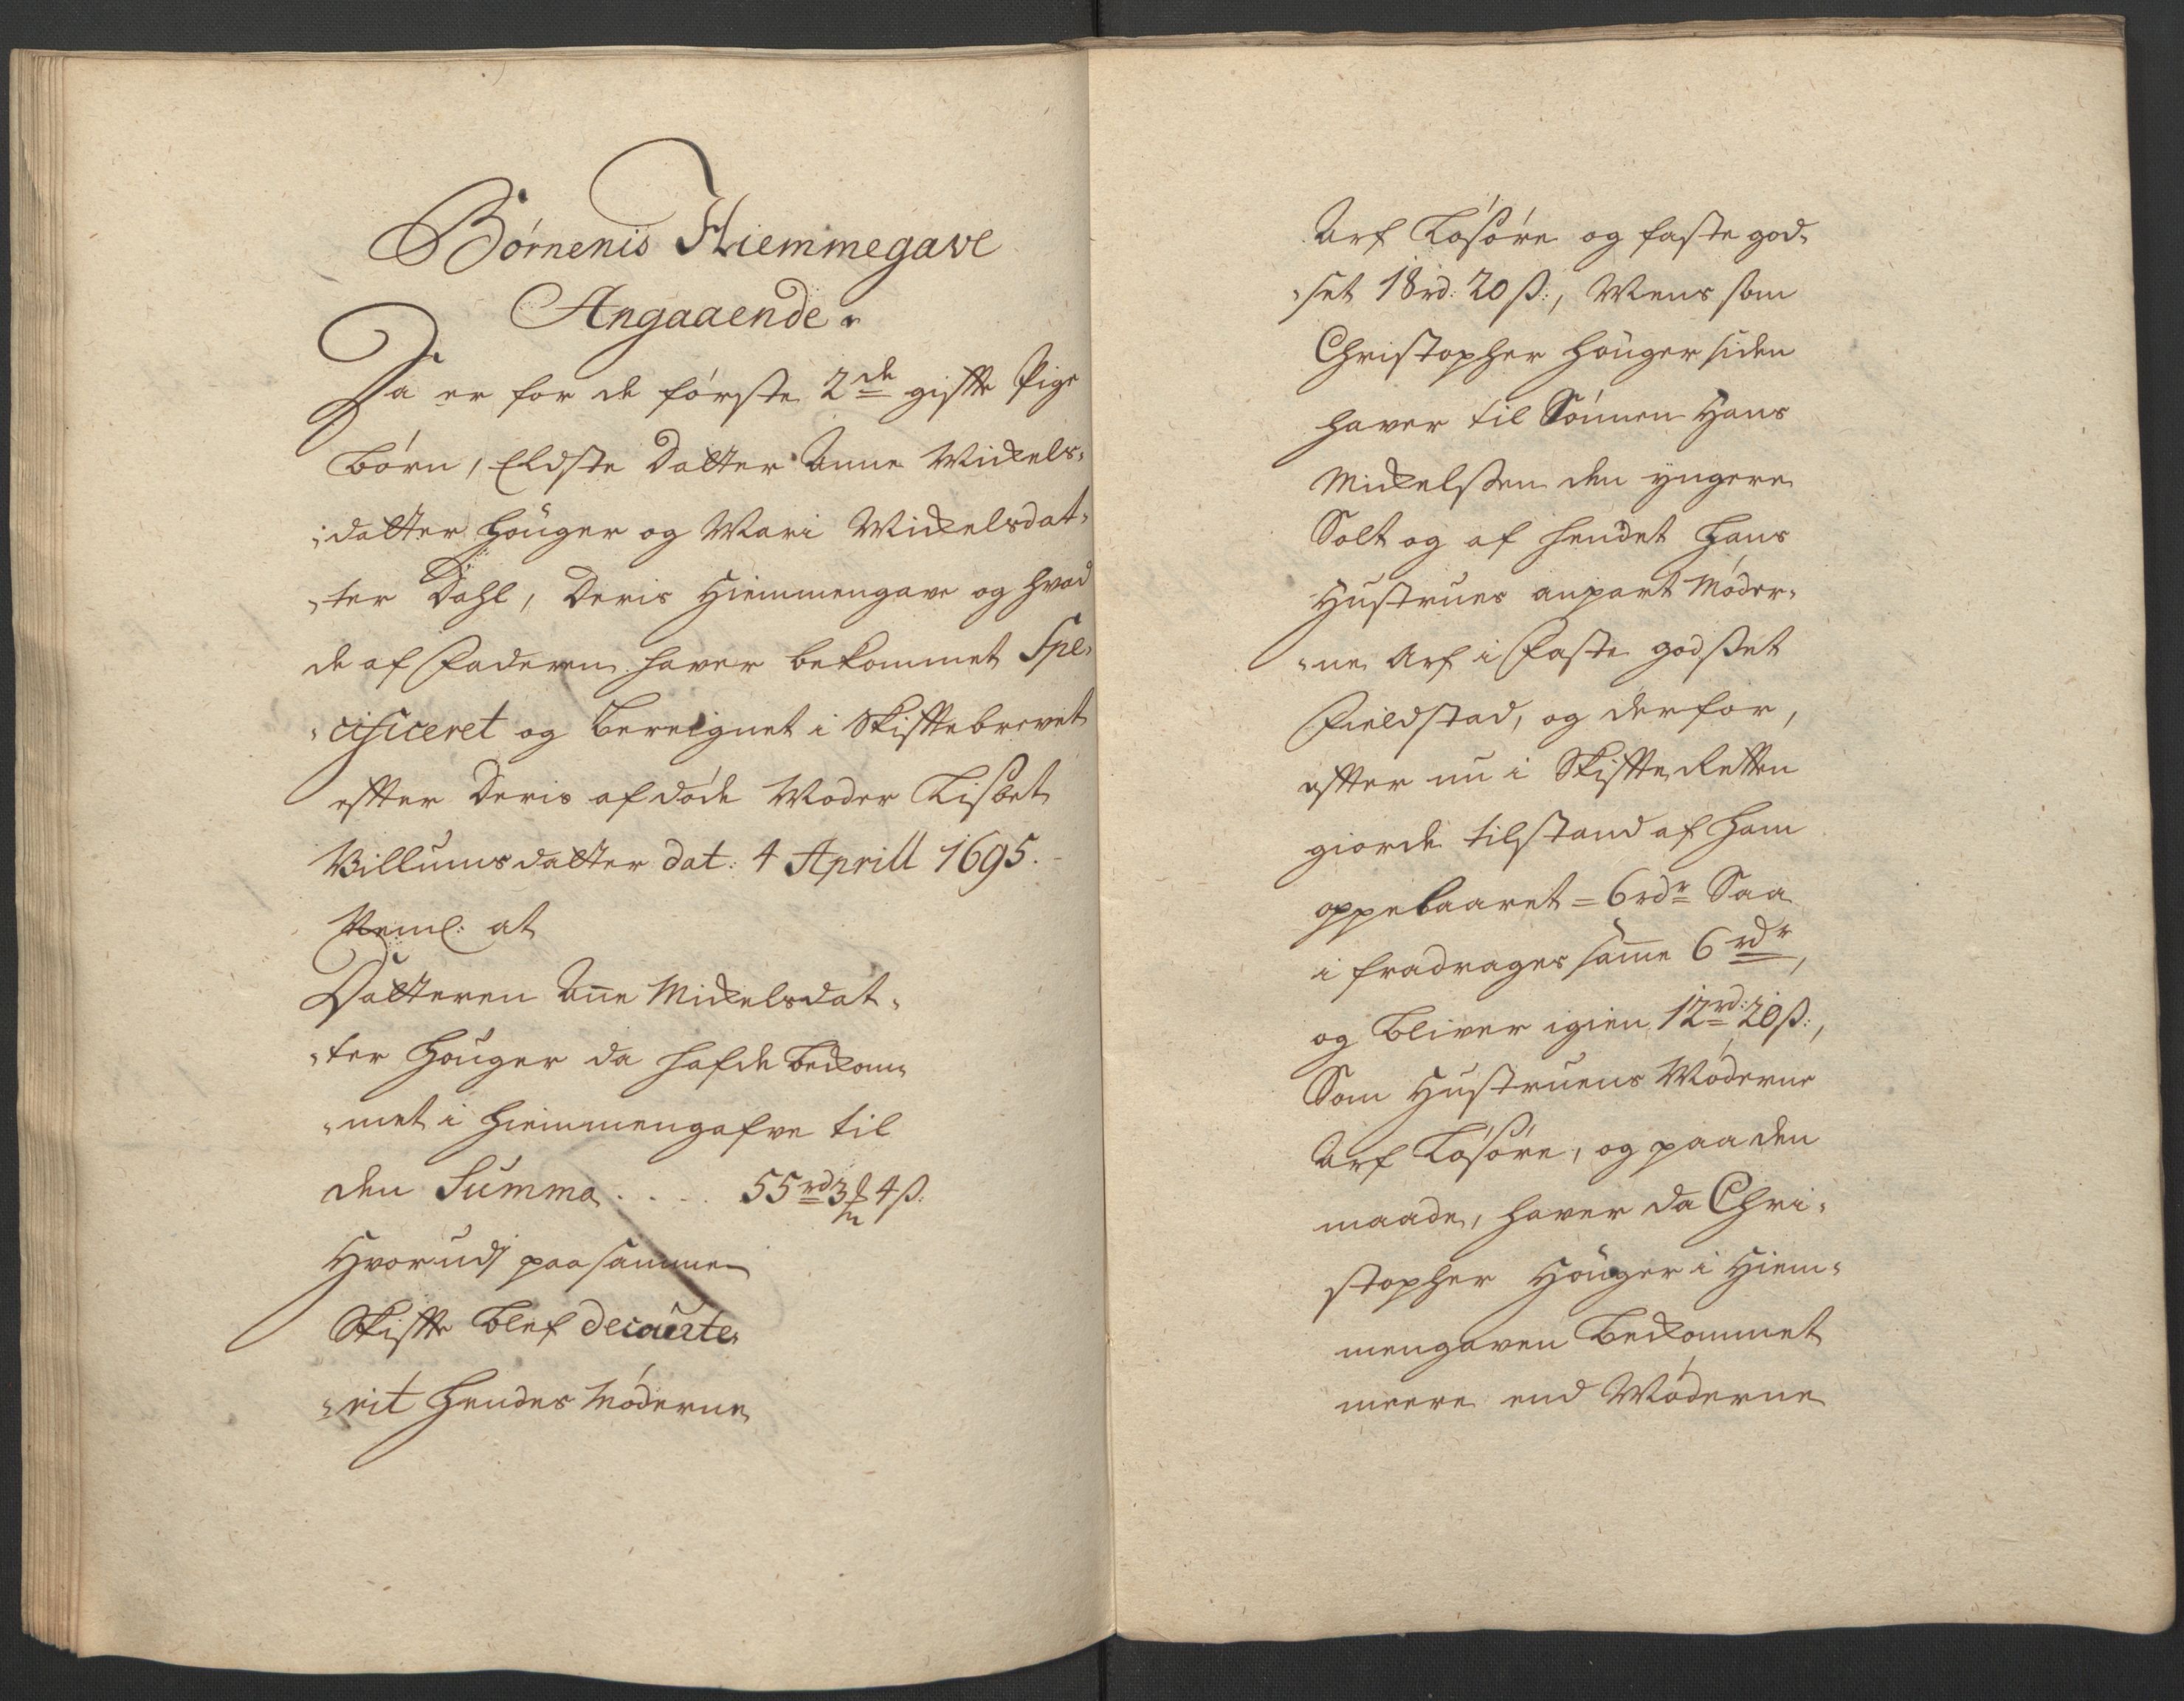 Börnenis Hiemmegave
Angaaende.
Da er for de förste 2de giffte Pige
börn, Eldste Datter Anne Mickels-
-datter Höuger og Mari Mickelsdat-
-ter Dahl, Deris Hiemmengave og hvad
de af Faderen haver bekommet Spe-
-cificeret og bereignet i Skifftebrevet
effter Deris afdöde Moder Lisbet
Villumsdatter dat: 4 Aprill 1695.
Neml: at
Datteren Añe Mickelsdat-
-ter Höuger da hafde bekom-
-met i hiemmengafve til
den Summa . . . . 55 rd 3 ₰ 4 ß:
Hvorudj paa samme
Skiffte blef decourte-
-rit hendes Möderne
Arf Lösöre og faste god-
-set 18 rd: 20 ß:, Mens som
Christopher Höuger siden
haver til Sönnen Hans
Mickelsen den yngere
Solt og af hendet hans
Hustrues anpart Möder-
-ne Arf i Faste godset
Fieldstad, og derfor,
effter nu i Skiffte Retten
giorde tilstand af ham
oppebaaret = 6 rdr Saa
i fradrages sam̃e 6 rdr,
og bliver igien 12 rd: 20 ß:,
Som Hustruens Möderne
Arf Lösöre, og paa den
maade, haver da Chri-
stopher Höuger i Hiem-
mengaven bekommet
meere end Möderne